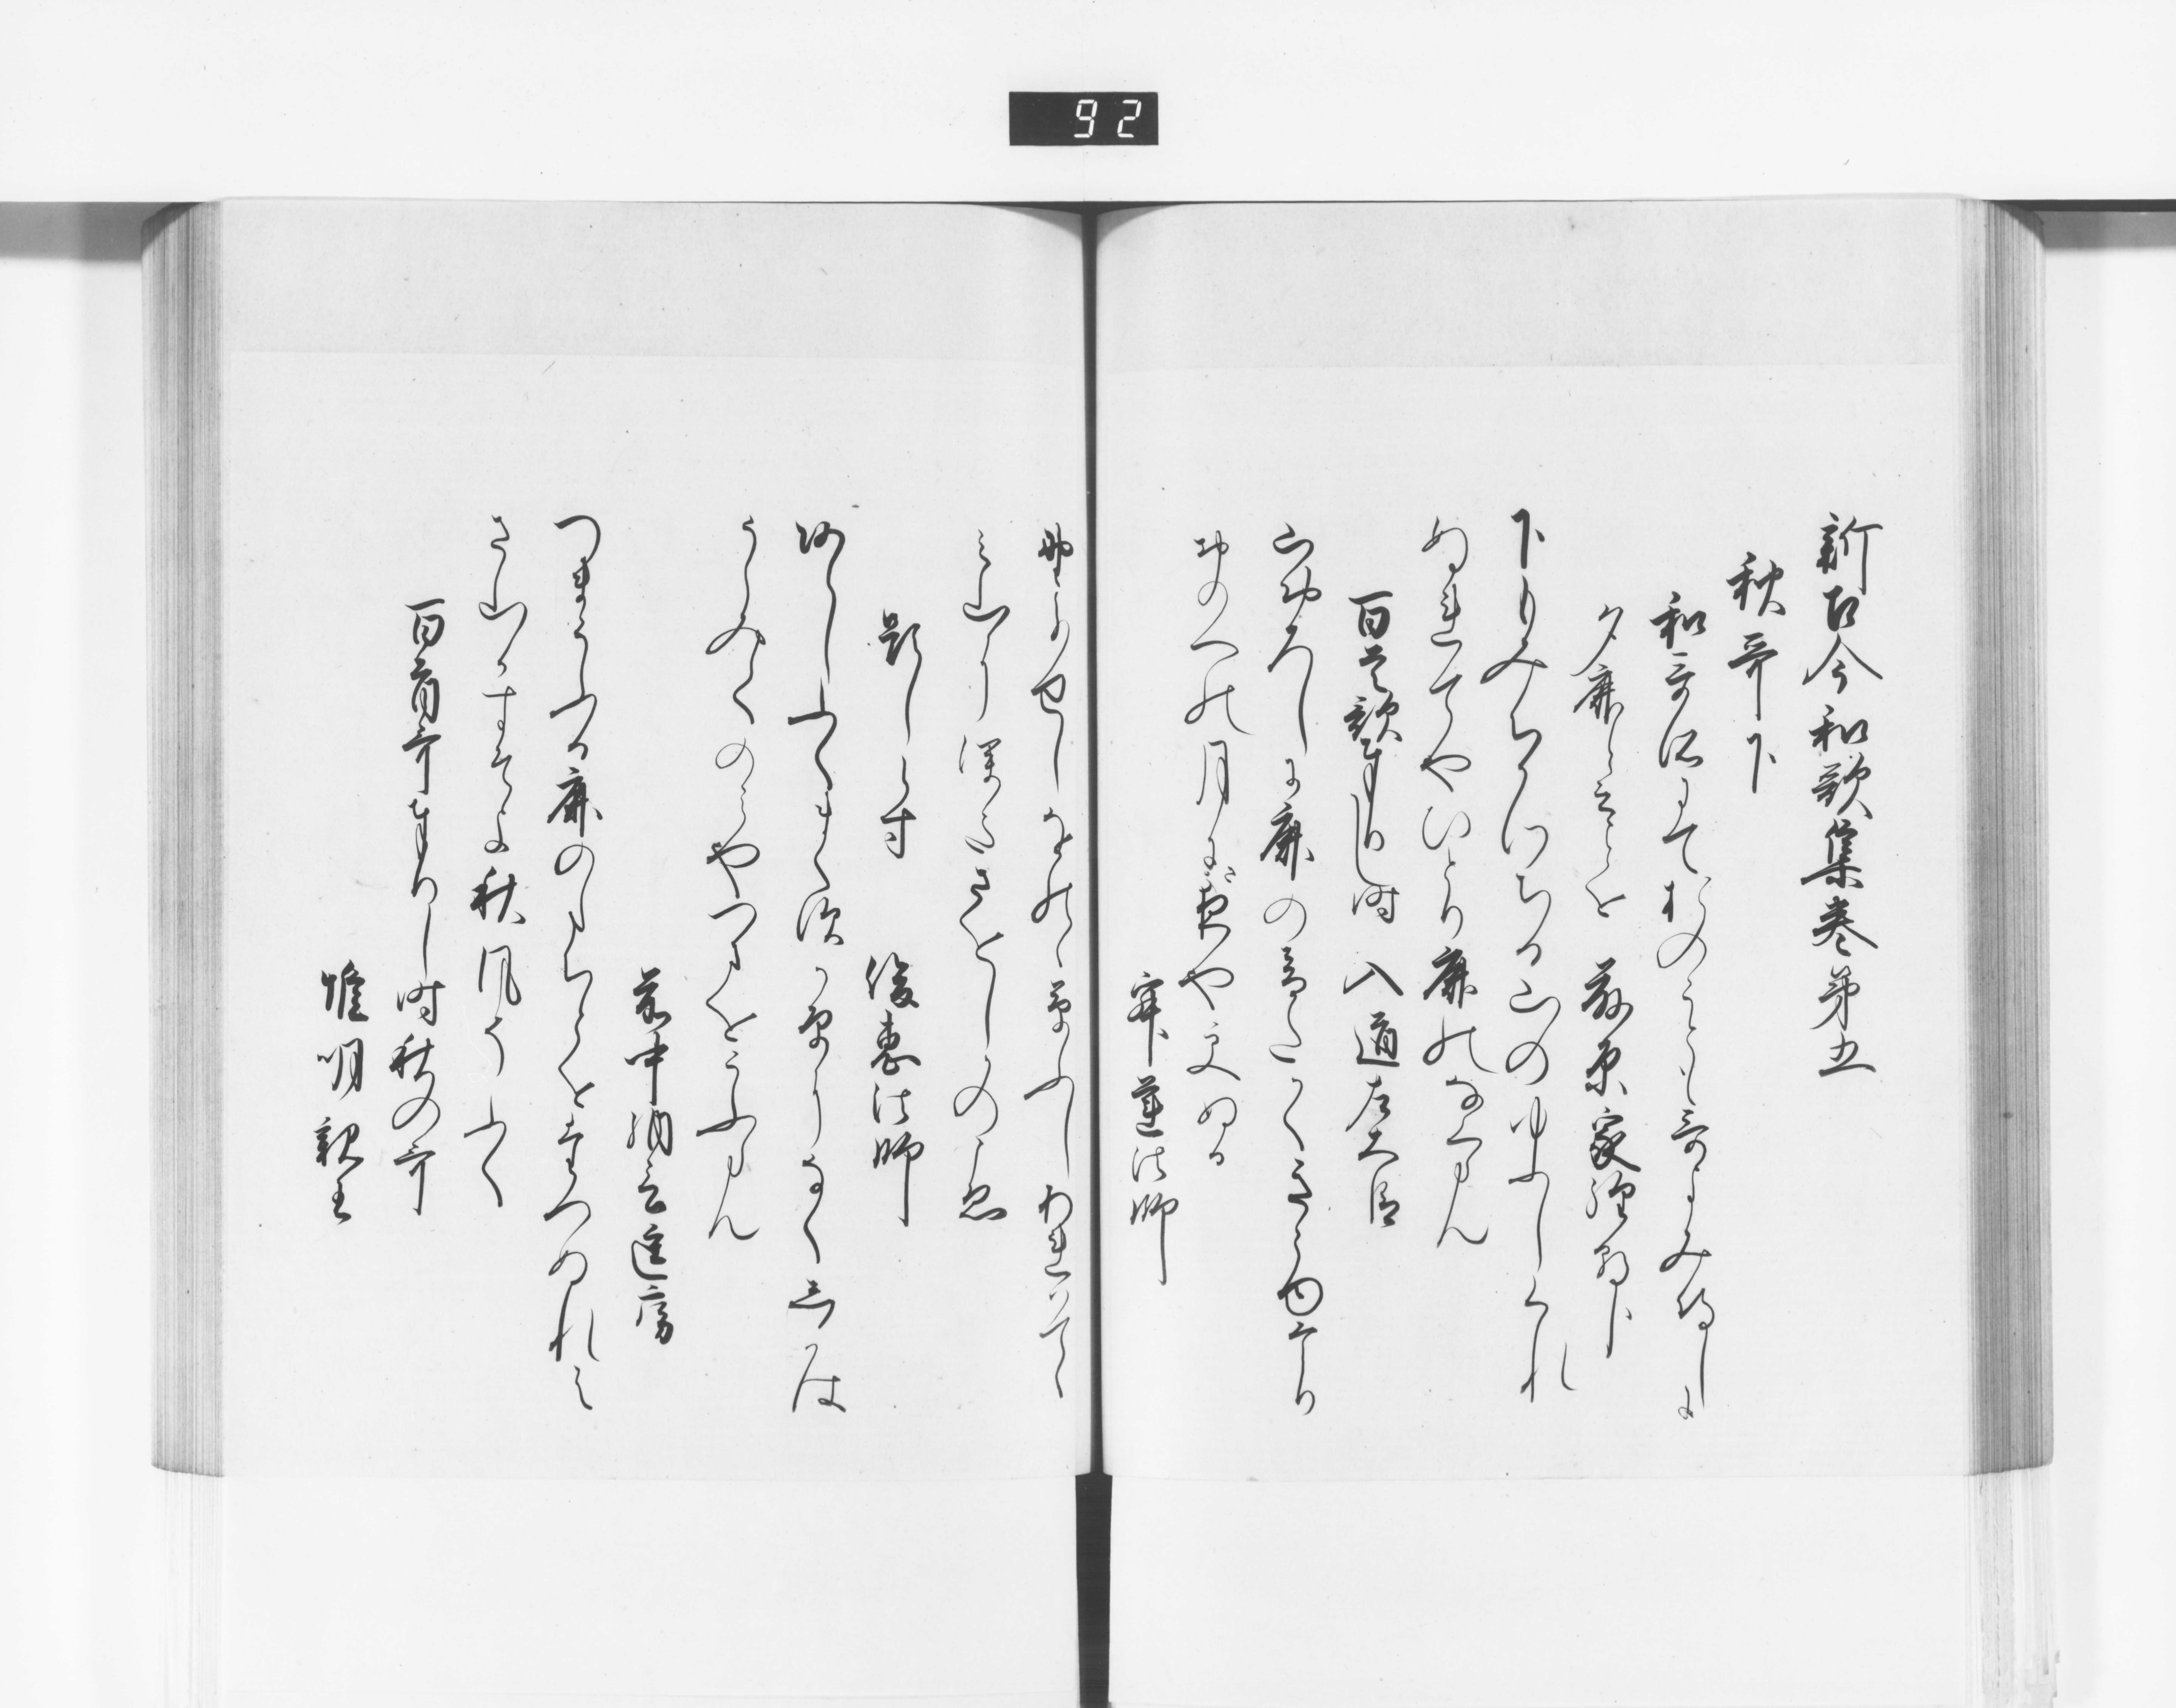 92
新古今和歌集巻第五
秋哥下
和哥所にてをのことも哥よみ侍しに
夕鹿といふことを 藤原家隆朝臣
下もみちかつちる山の夕しくれ
ぬれてやひとり鹿のなくらん
百首歌奉りし時 入道左大臣
山おろしに鹿の音たかくきこゆ也
おのへの月にさ夜や更ぬる
寂蓮法師
野わきせしをのゝ草ふしあれはてゝ
み山にふかきさをしかのこゑ
題しらす 俊恵法師
あらしふくまくすか原になく鹿は
うらみてのみやつまをこふらん
前中納言匡房
つまこふる鹿のたちとを尋ぬれは
さ山かすそに秋風そふく
百首哥奉りし時秋の哥
惟明親王